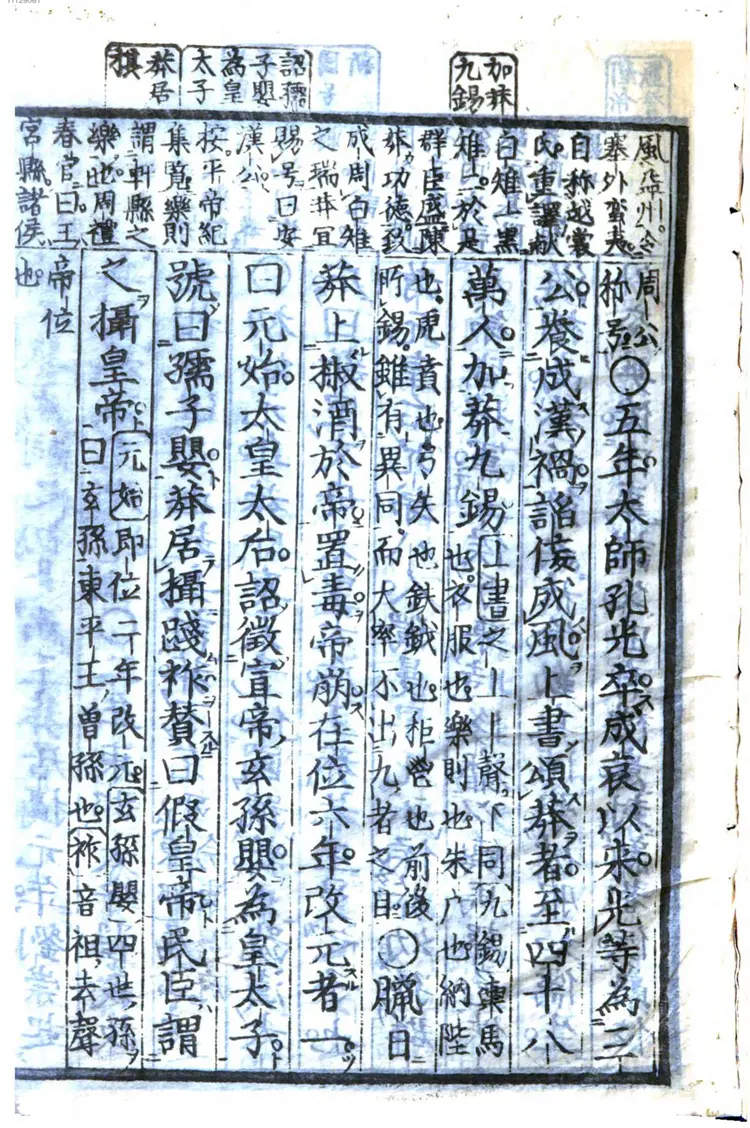 加莽
九錫
詔孺
子嬰
為皇
太子
莽居
風益州令
塞外蛮夷
自称越裳
氏重譯献
白雉一黒
雉二於是
群臣盛陳
莽功德致
成周白雉
之瑞莽宜
賜号曰安
漢公
按平帝紀
集覧樂則
謂軒縣之
樂也周禮
春官曰王
宮縣諸侯
周公
称号○五年太師孔光卒成哀以来光等為三
公養成漢禍諂佞成風上書頌莽者至四十八
萬人加莽九錫上書之上上聲下同九錫車馬
也衣服也樂則也朱户也納陛
也虎賁也弓矢也鈇鉞也秬鬯也前後
所錫雖有異同而大率不出九者之目○臘日
莽上椒酒於帝置毒帝崩在位六年改元者一
曰元始太皇太后詔徴宣帝玄孫嬰為皇太子
號曰孺子嬰莽居攝踐祚賛曰假皇帝民臣謂
之攝皇帝元始即位二年改元玄孫嬰四世孫
曰玄孫東平王曾孫也祚音祖去聲
帝位
也